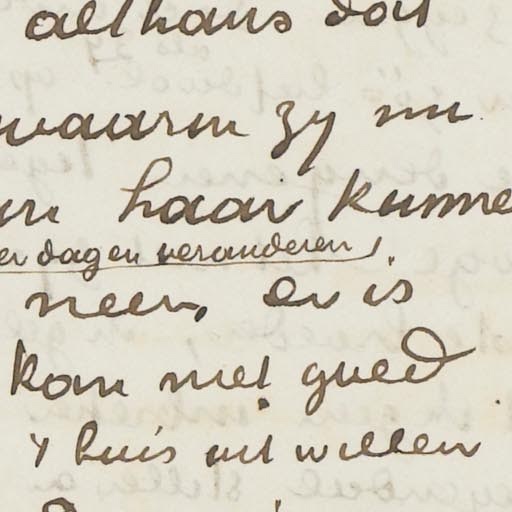 althans dat
waarin zy nu
haar kunne
er dagen veranderen,
neen, er is
kan niet goed
't huis uit willen